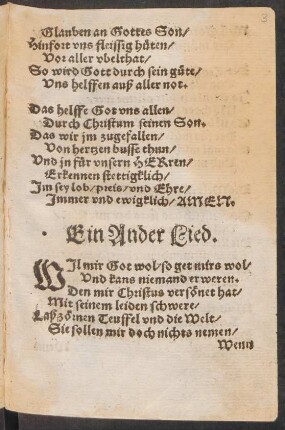 3
Glauben an Gottes Son/
Hinfort vns fleissig hüten/
Vor aller vbelthat/
So wird Gott durch sein güte/
Vns helffen auß aller not.
Das helffe Got vns allen/
Durch Christum seinen Son.
Das wir jm zugefallen/
Von hertzen busse thun/
Vnd jn für vnsern HERren/
Erkennen stettigklich/
Jm sey lob/ preis/ vnd Ehre/
Jmmer vnd ewigklich/ AMEN.
Ein Ander Lied.
WJl mir Got wol/ so get mirs wol/
Vnd kans niemand erweren.
Den mir Christus versönet hat/
Mit seinem leiden schwere/
Laß zörnen Teuffel vnd die Welt/
Sie sollen mir doch nichts nemen/
Wenn